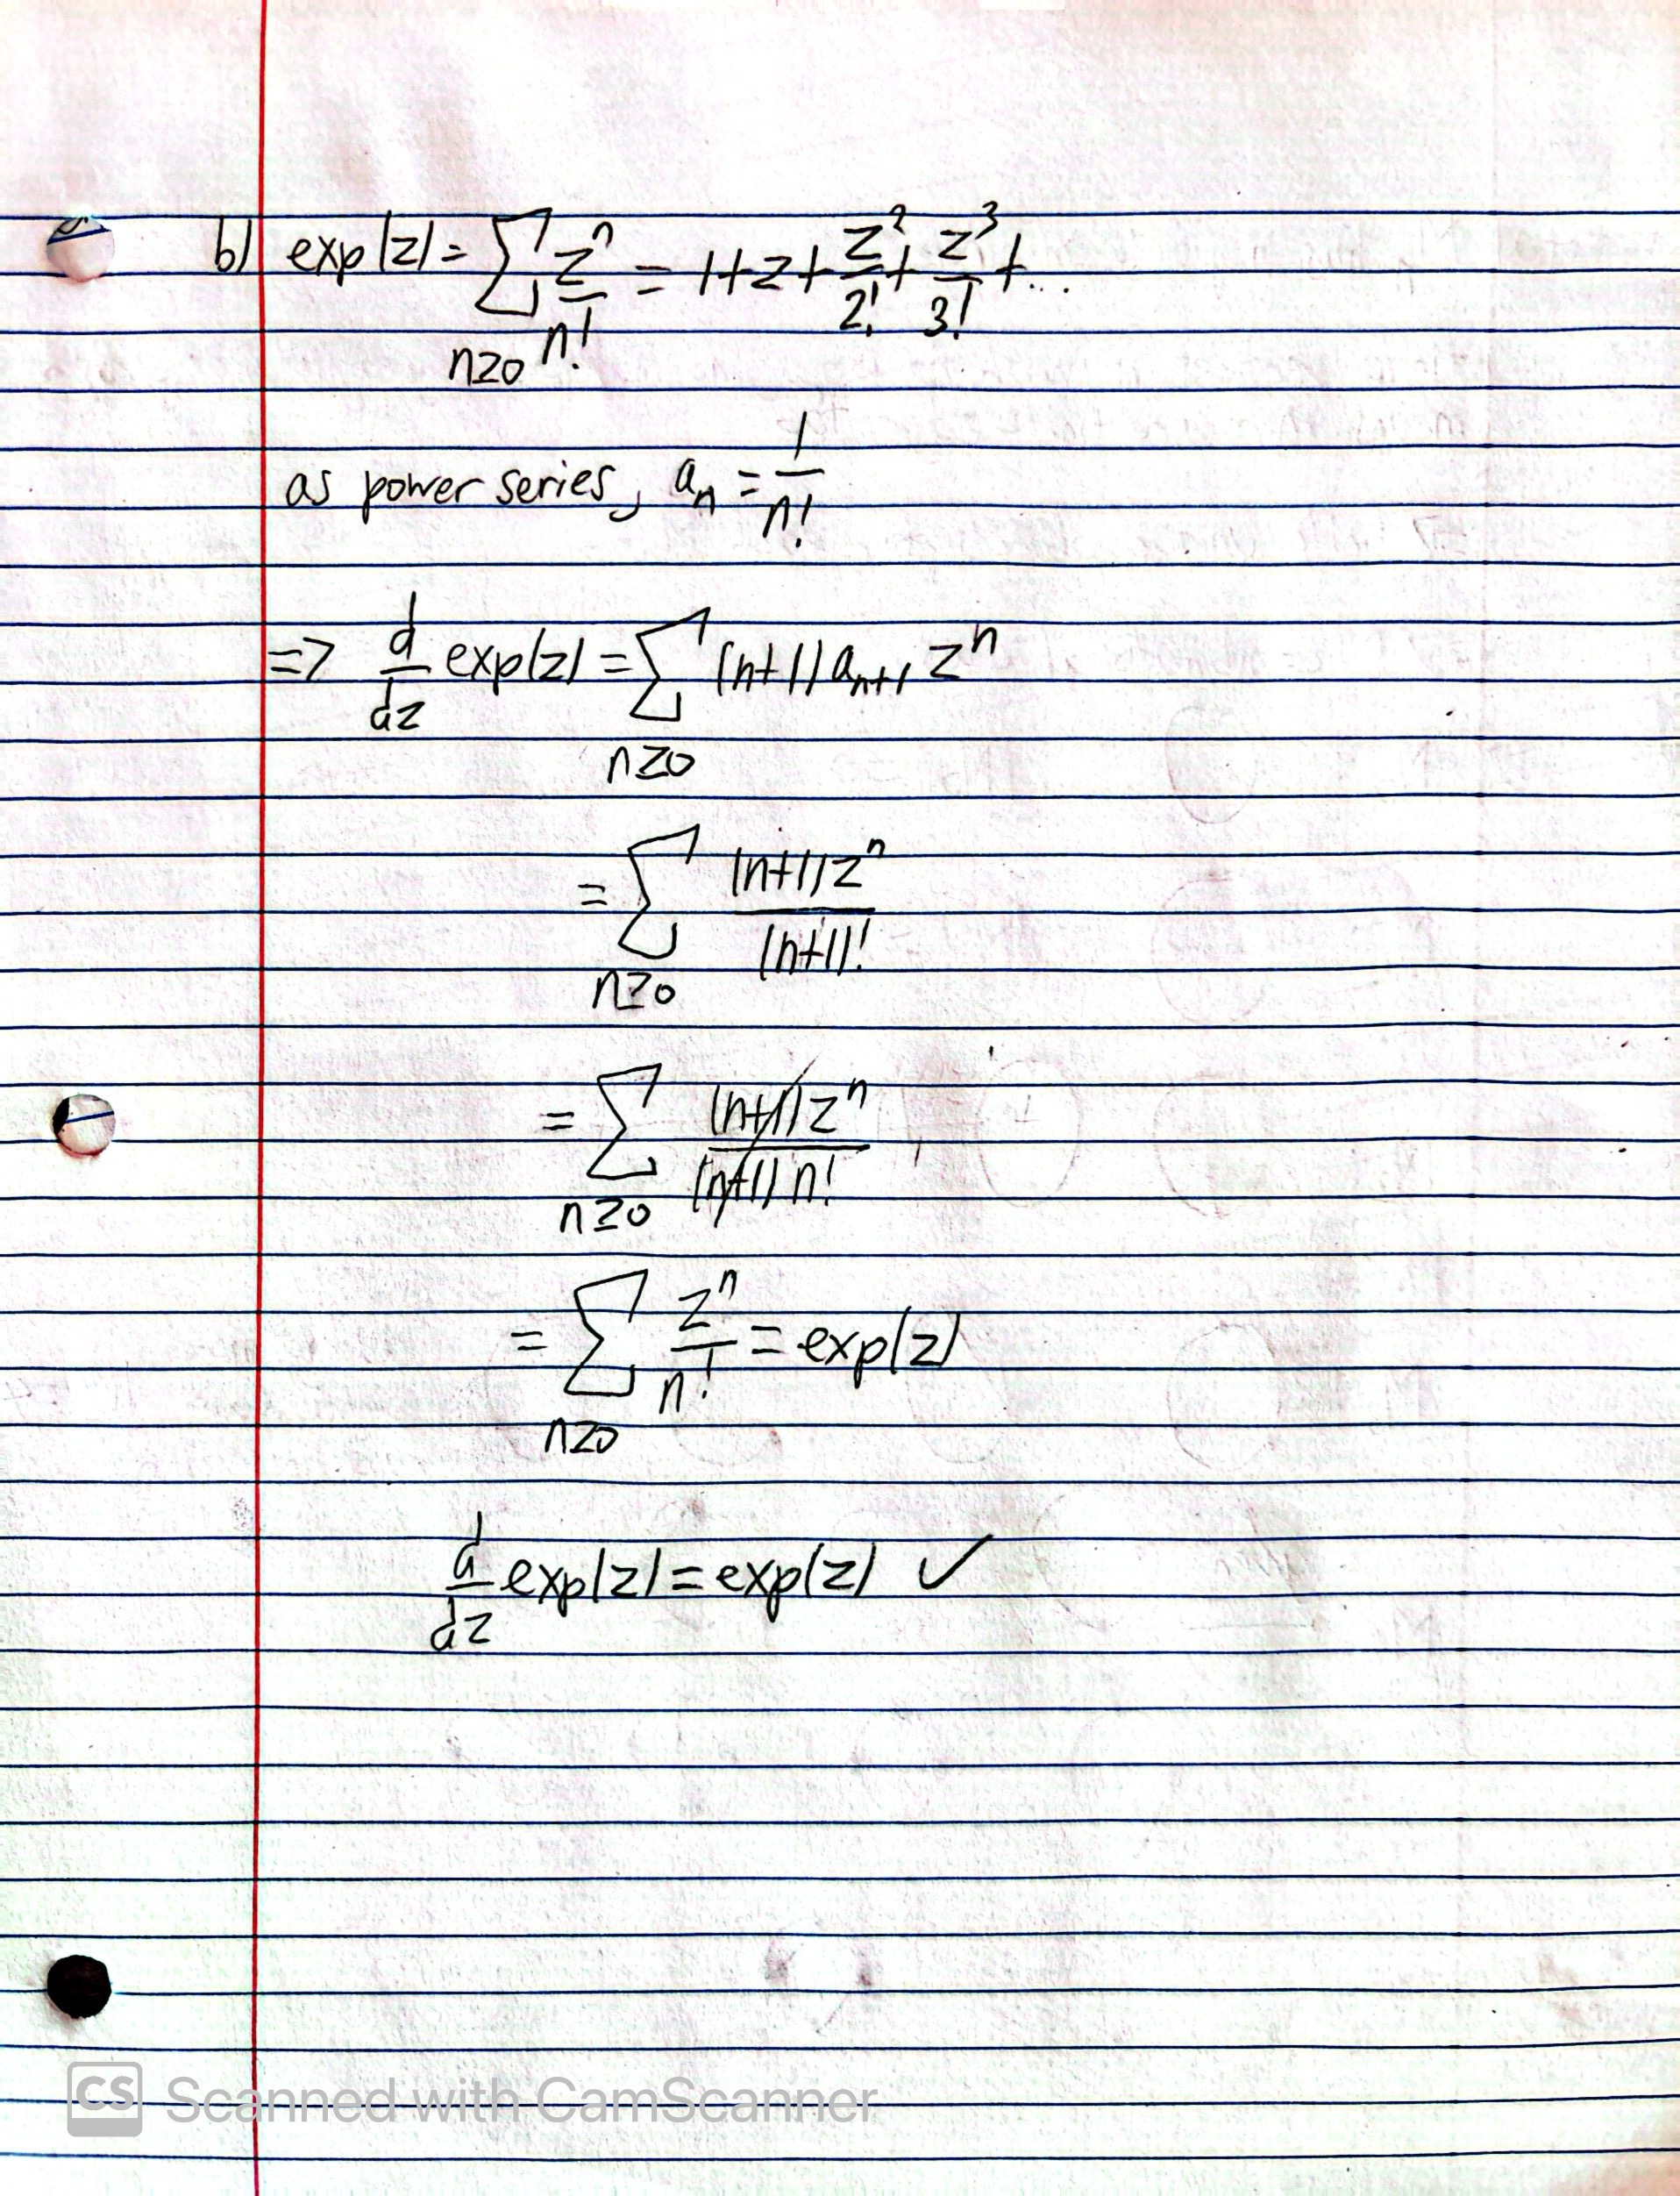 b) exp(z) = ∑_{n≥0} z^n/n! = 1+z+z^2/2!+z^3/3!+...
as power series, a_n = 1/n!
=> d/dz exp(z) = ∑_{n≥0} (n+1) a_{n+1} z^n
= ∑_{n≥0} (n+1)z^n/(n+1)!
= ∑_{n≥0} (n+1)z^n/(n+1) n!
= ∑_{n≥0} z^n/n! = exp(z)
d/dz exp(z) = exp(z) ✓
CS Scanned with CamScanner